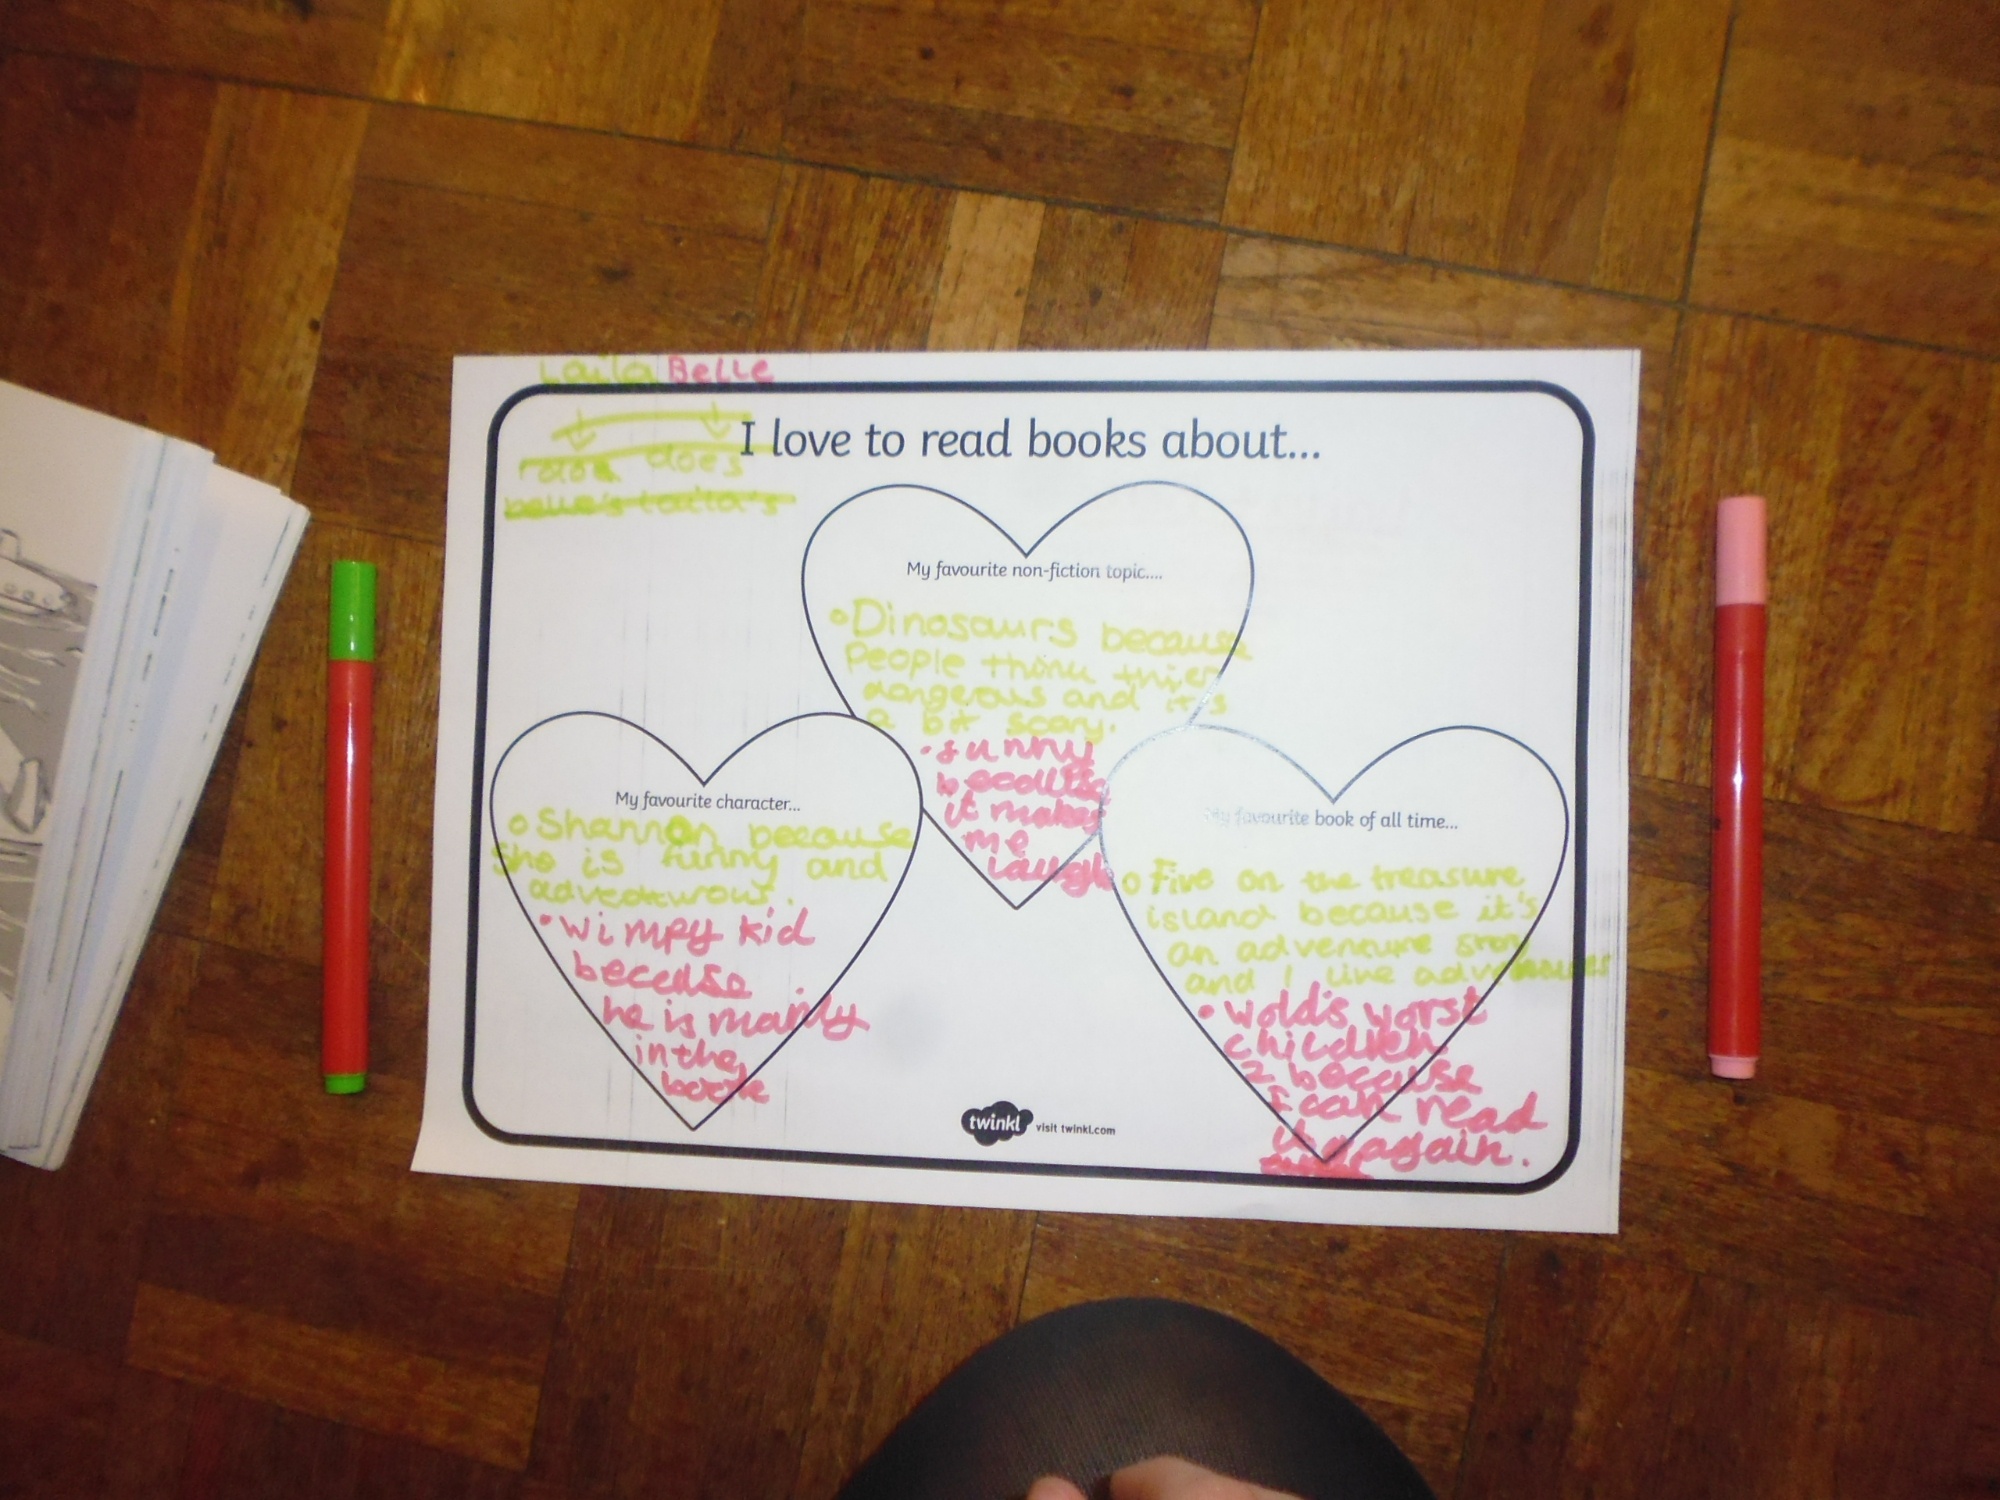 Laila Belle
I love to read books about...
does
belle's laila's
My favourite non-fiction topic....
Dinosaurs because
People think thier
dangerous and it's
a bit scary.
funny
because
it makes
me
laugh
My favourite character...
Shannon because
She is funny and
adventurous.
Wimpy kid
becease
he is mainly
in the
book
My favourite book of all time...
Five on the treasure
island because it's
an adventure srory
and I like adventures
Wold's worst
children
2 because
I can read
it again.
twinkl visit twinkl.com